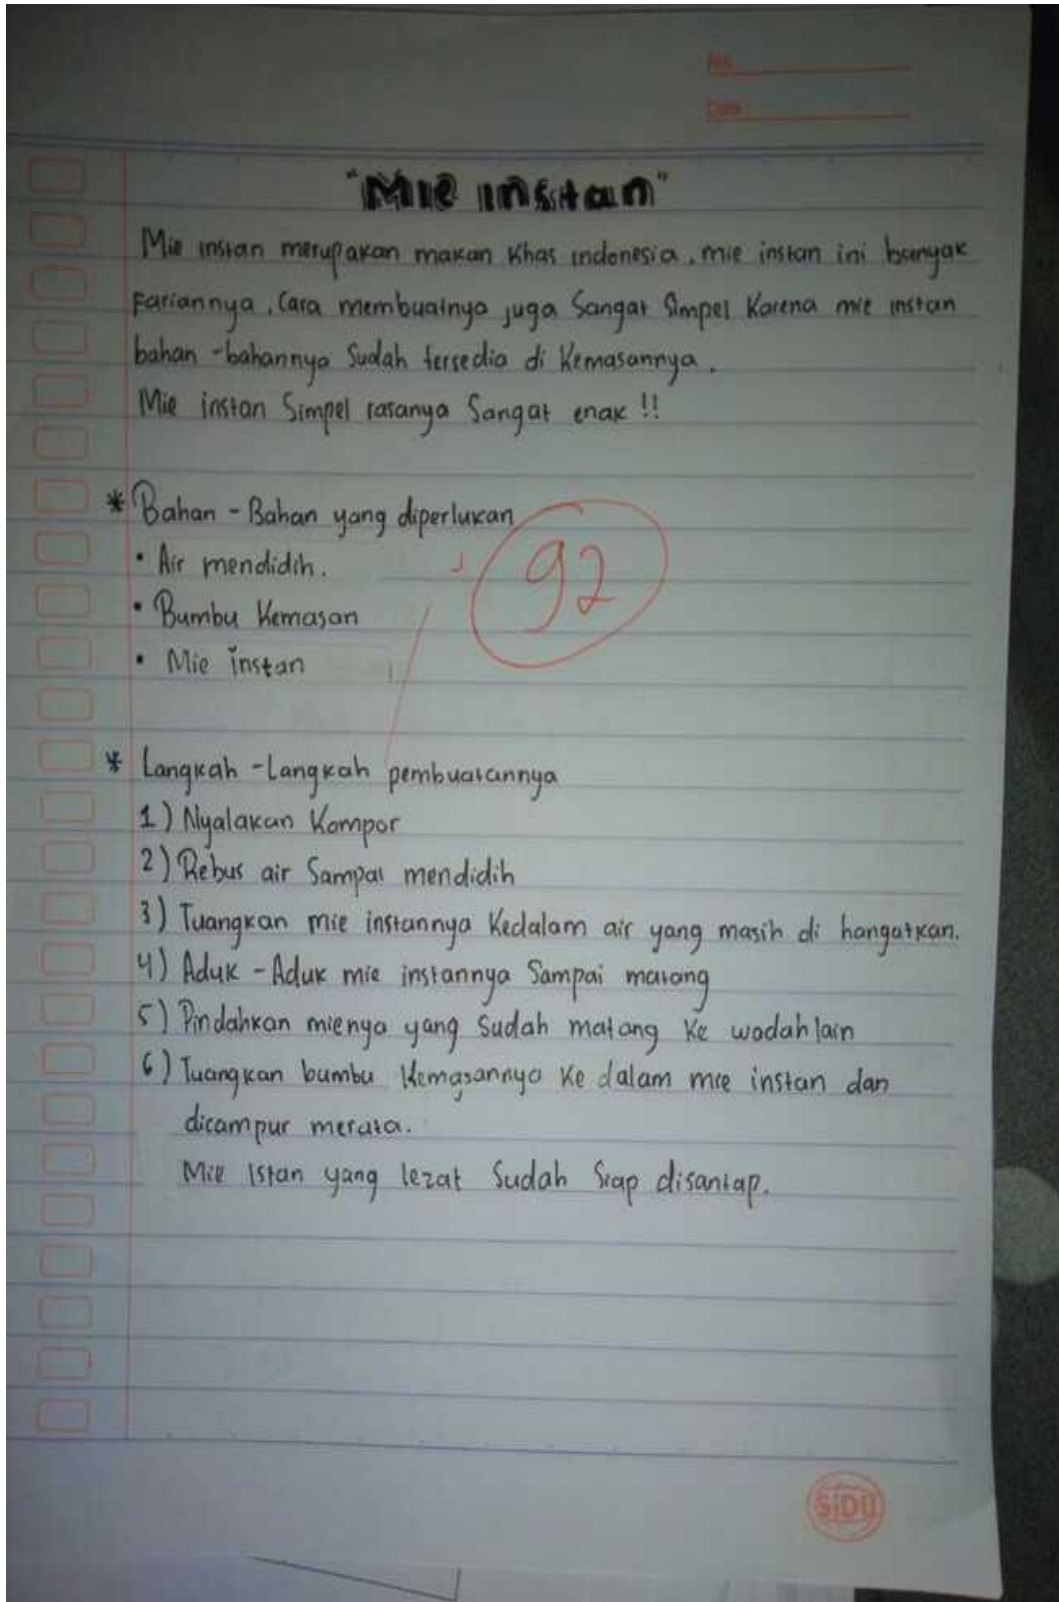 No
Date :
"Mie instan"
Mie instan merupakan makan Khas indonesia. mie instan ini banyak
Fariannya. Cara membuatnya juga Sangat Simpel Karena mie instan
bahan-bahannya Sudah tersedia di Kemasannya.
Mie instan Simpel rasanya Sangat enak !!
* Bahan - Bahan yang diperlukan
• Air mendidih.
• Bumbu Kemasan
• Mie instan
92
* Langkah - Langkah pembuatannya
1) Nyalakan Kompor
2) Rebus air Sampai mendidih
3) Tuangkan mie instannya Kedalam air yang masih di hangatkan.
4) Aduk - Aduk mie instannya Sampai matang
5) Pindahkan mienya yang Sudah matang Ke wadah lain
6) Tuangkan bumbu Kemasannya Ke dalam mie instan dan
dicampur merata.
Mie Istan yang lezat Sudah Siap disantap.
SiDU